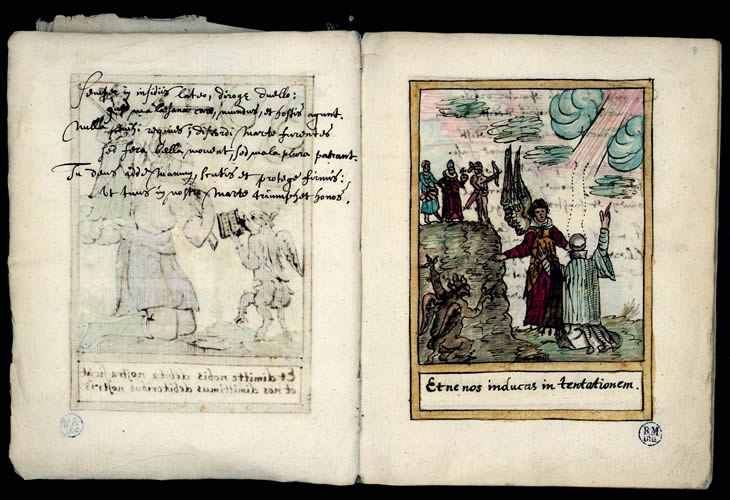 Semper in insidiis lateo, diroqz duello:
mundus, et hostis agunt.
Nulla discordi Marte furentes
Sed fera bella movent, sed mala plura patrant.
Tu deus adde manum, fortis et protege firmus:
Et tuus in nostro Marte triumphet honos.
Et dimitte nobis debita nostra sicut
et nos dimittimus debitoribus nostris
8
Et ne nos inducas in tentationem.
RM